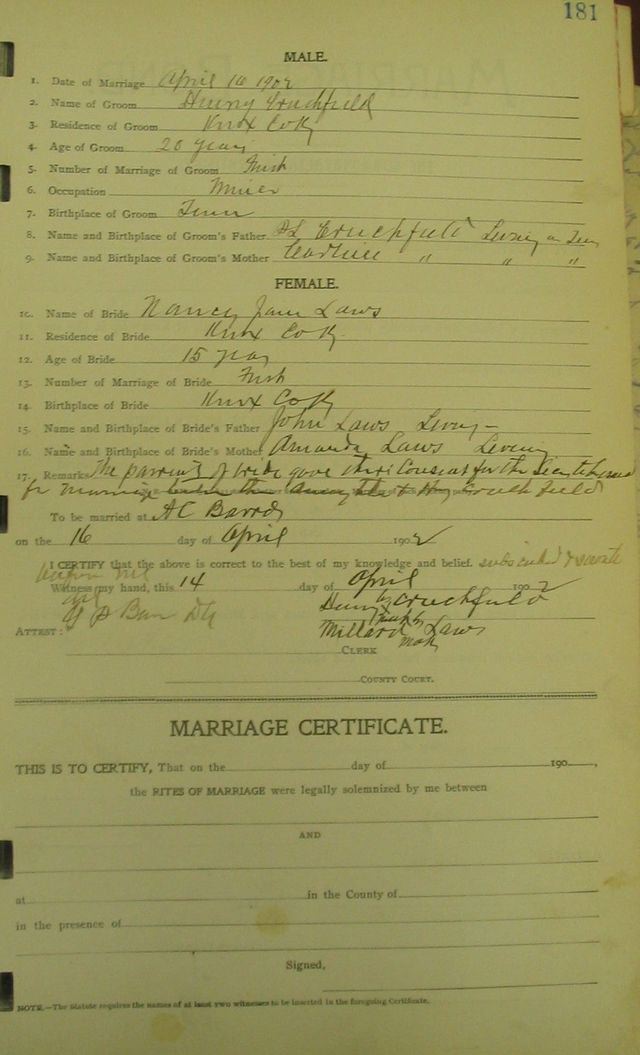 181
MALE.
1. Date of Marriage April 16 1902
2. Name of Groom Henry Cruchfield
3. Residence of Groom Knox Co Ky
4. Age of Groom 20 years
5. Number of Marriage of Groom First
6. Occupation Miner
7. Birthplace of Groom Tenn
8. Name and Birthplace of Groom's Father Cruchfield Living in Tenn
9. Name and Birthplace of Groom's Mother " " "
FEMALE.
10. Name of Bride Nancy Jane Laws
11. Residence of Bride Knox Co Ky
12. Age of Bride 15 years
13. Number of Marriage of Bride First
14. Birthplace of Bride Knox Co Ky
15. Name and Birthplace of Bride's Father John Laws Living
16. Name and Birthplace of Bride's Mother Amanda Laws Living
17. Remarks The parrents of bride gave their Consent for the
for marriage Cruchfield
To be married at A C Barrds
on the 16 day of April 1902
I CERTIFY that the above is correct to the best of my knowledge and belief. subscribed &
Witness my hand, this 14 day of April 1902
Henry X Cruchfield
ATTEST: Millard Laws
mark
CLERK
COUNTY COURT.
MARRIAGE CERTIFICATE.
THIS IS TO CERTIFY, That on the day of 190 ,
the RITES OF MARRIAGE were legally solemnized by me between
AND
at in the County of
in the presence of
Signed,
NOTE.—The Statute requires the names of at least two witnesses to be inserted in the foregoing Certificate.